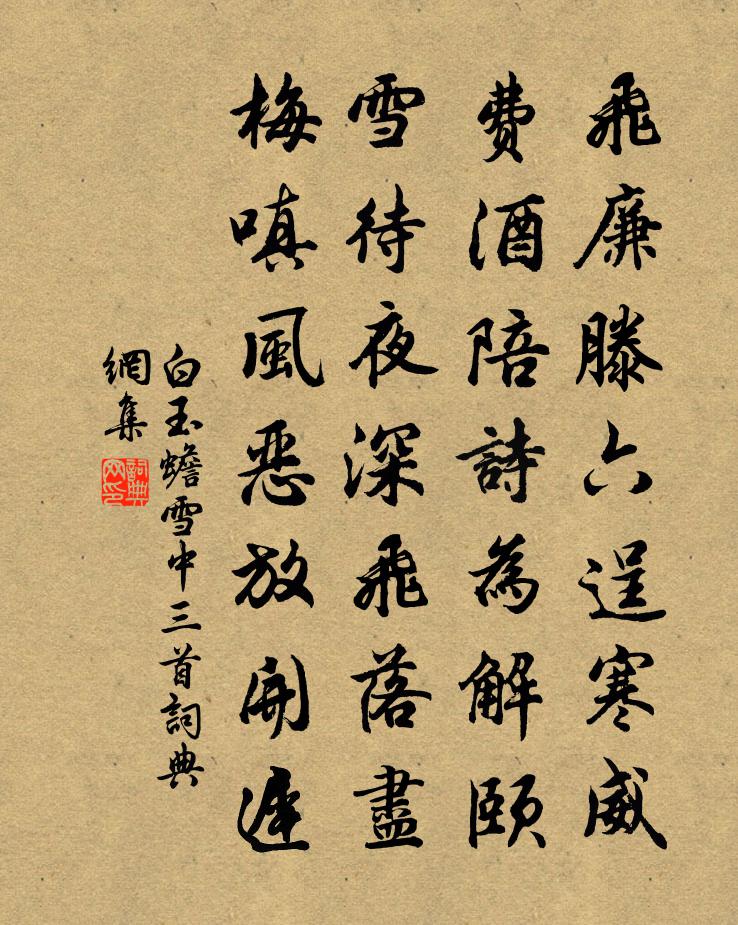 飛廉滕六逞寒威
費酒陪詩為解頤
雪待夜深飛落盡
梅嗔風惡放開遲
白玉蟾雪中三首詞典
網集
詞典網印